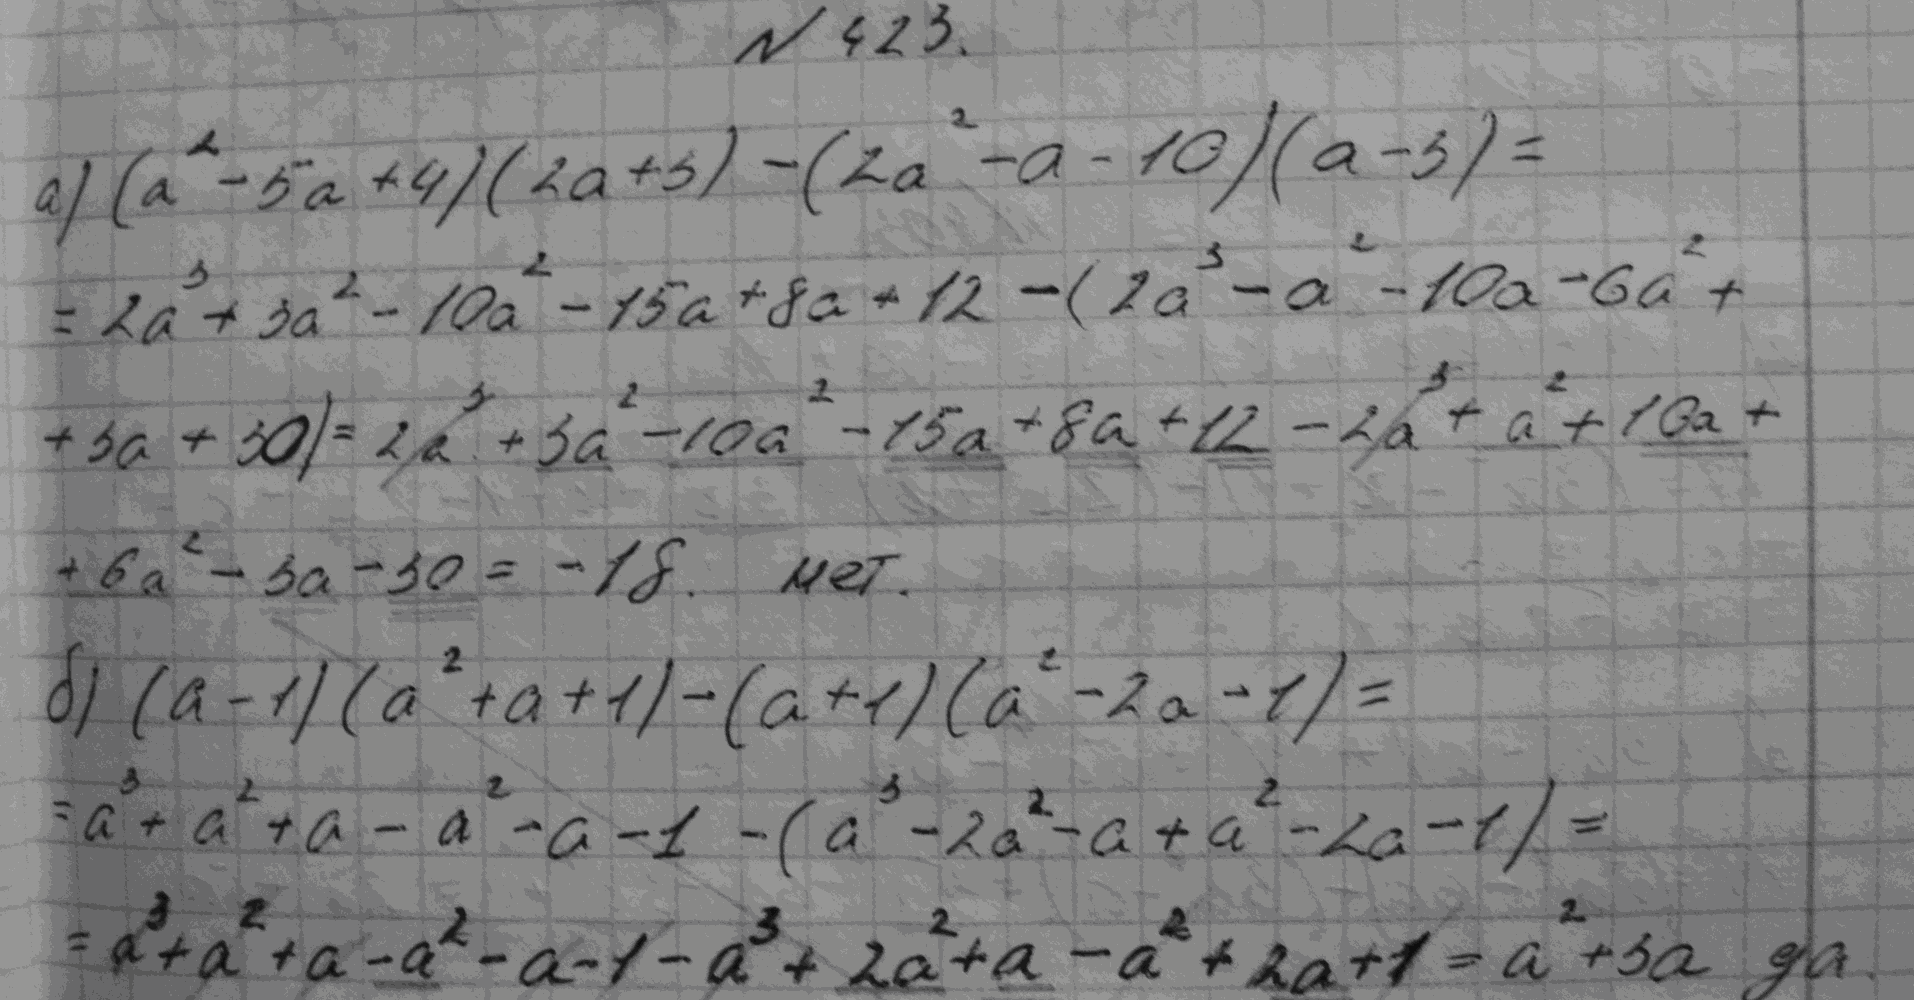 N 423.
а) (a² - 5a + 4)(2a + 3) - (2a² - a - 10)(a - 3) =
= 2a³ + 3a² - 10a² - 15a + 8a + 12 - (2a³ - a² - 10a - 6a² +
+ 3a + 30) = 2a³ + 3a² - 10a² - 15a + 8a + 12 - 2a³ + a² + 10a +
+ 6a² - 3a - 30 = -18. нет.
б) (a - 1)(a² + a + 1) - (a + 1)(a² - 2a - 1) =
= a³ + a² + a - a² - a - 1 - (a³ - 2a² - a + a² - 2a - 1) =
= a³ + a² + a - a² - a - 1 - a³ + 2a² + a - a² + 2a + 1 = a² + 3a да